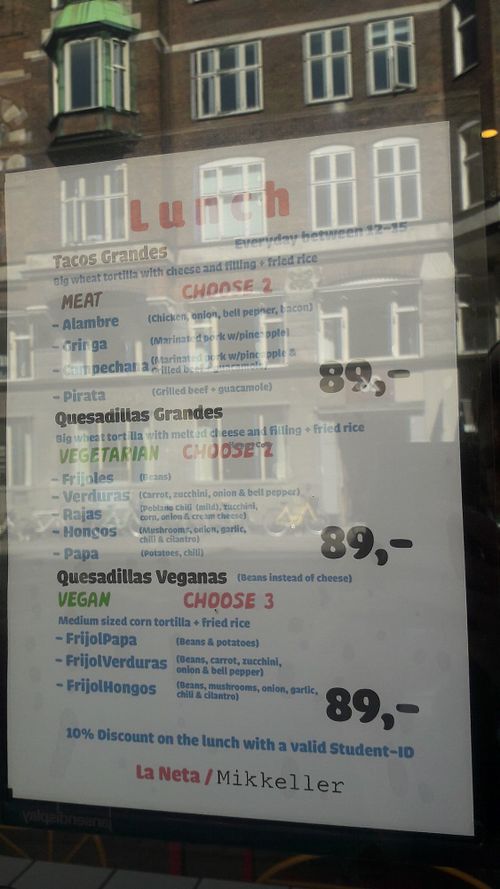 Lunch
Everyday between 12-15
Tacos Grandes
Big wheat tortilla with cheese and filling + fried rice
MEAT CHOOSE 2
- Alambre (Chicken, onion, bell pepper, bacon)
- Gringa (Marinated pork w/pineapple)
- Campechana (Marinated pork w/pineapple &
Grilled beef + guacamole)
89,-
- Pirata (Grilled beef + guacamole)
Quesadillas Grandes
Big wheat tortilla with melted cheese and filling + fried rice
VEGETARIAN CHOOSE 2
- Frijoles (Beans)
- Verduras (Carrot, zucchini, onion & bell pepper)
- Rajas (Poblano chili (mild), zucchini,
corn, onion & cream cheese)
- Hongos (Mushrooms, onion, garlic,
chili & cilantro)
89,-
- Papa (Potatoes, chili)
Quesadillas Veganas (Beans instead of cheese)
VEGAN CHOOSE 3
Medium sized corn tortilla + fried rice
- FrijolPapa (Beans & potatoes)
- FrijolVerduras (Beans, carrot, zucchini,
onion & bell pepper)
- FrijolHongos (Beans, mushrooms, onion, garlic,
chili & cilantro)
89,-
10% Discount on the lunch with a valid Student-ID
La Neta / Mikkeller
jansendisplay